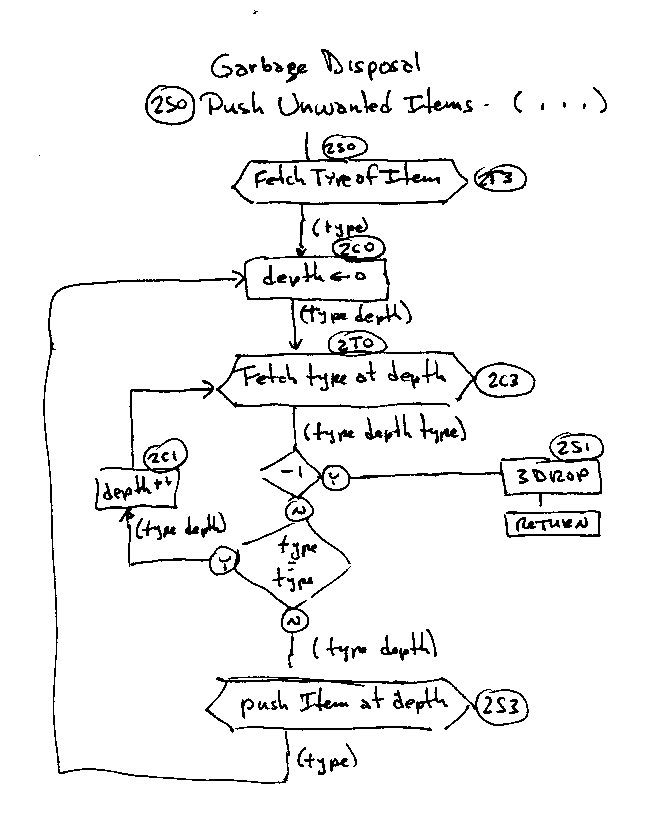 Garbage Disposal
2S0 Push Unwanted Items - (...)
2S0
Fetch Type of Item 2T3
(type)
2C0
depth ← 0
(type depth)
2T0
Fetch type at depth 2C3
(type depth type)
2C1
depth++
-1 Y
2S1
3 DROP
RETURN
(type depth)
N
Y
type
=
type
N
(type depth)
push Item at depth 2S3
(type)